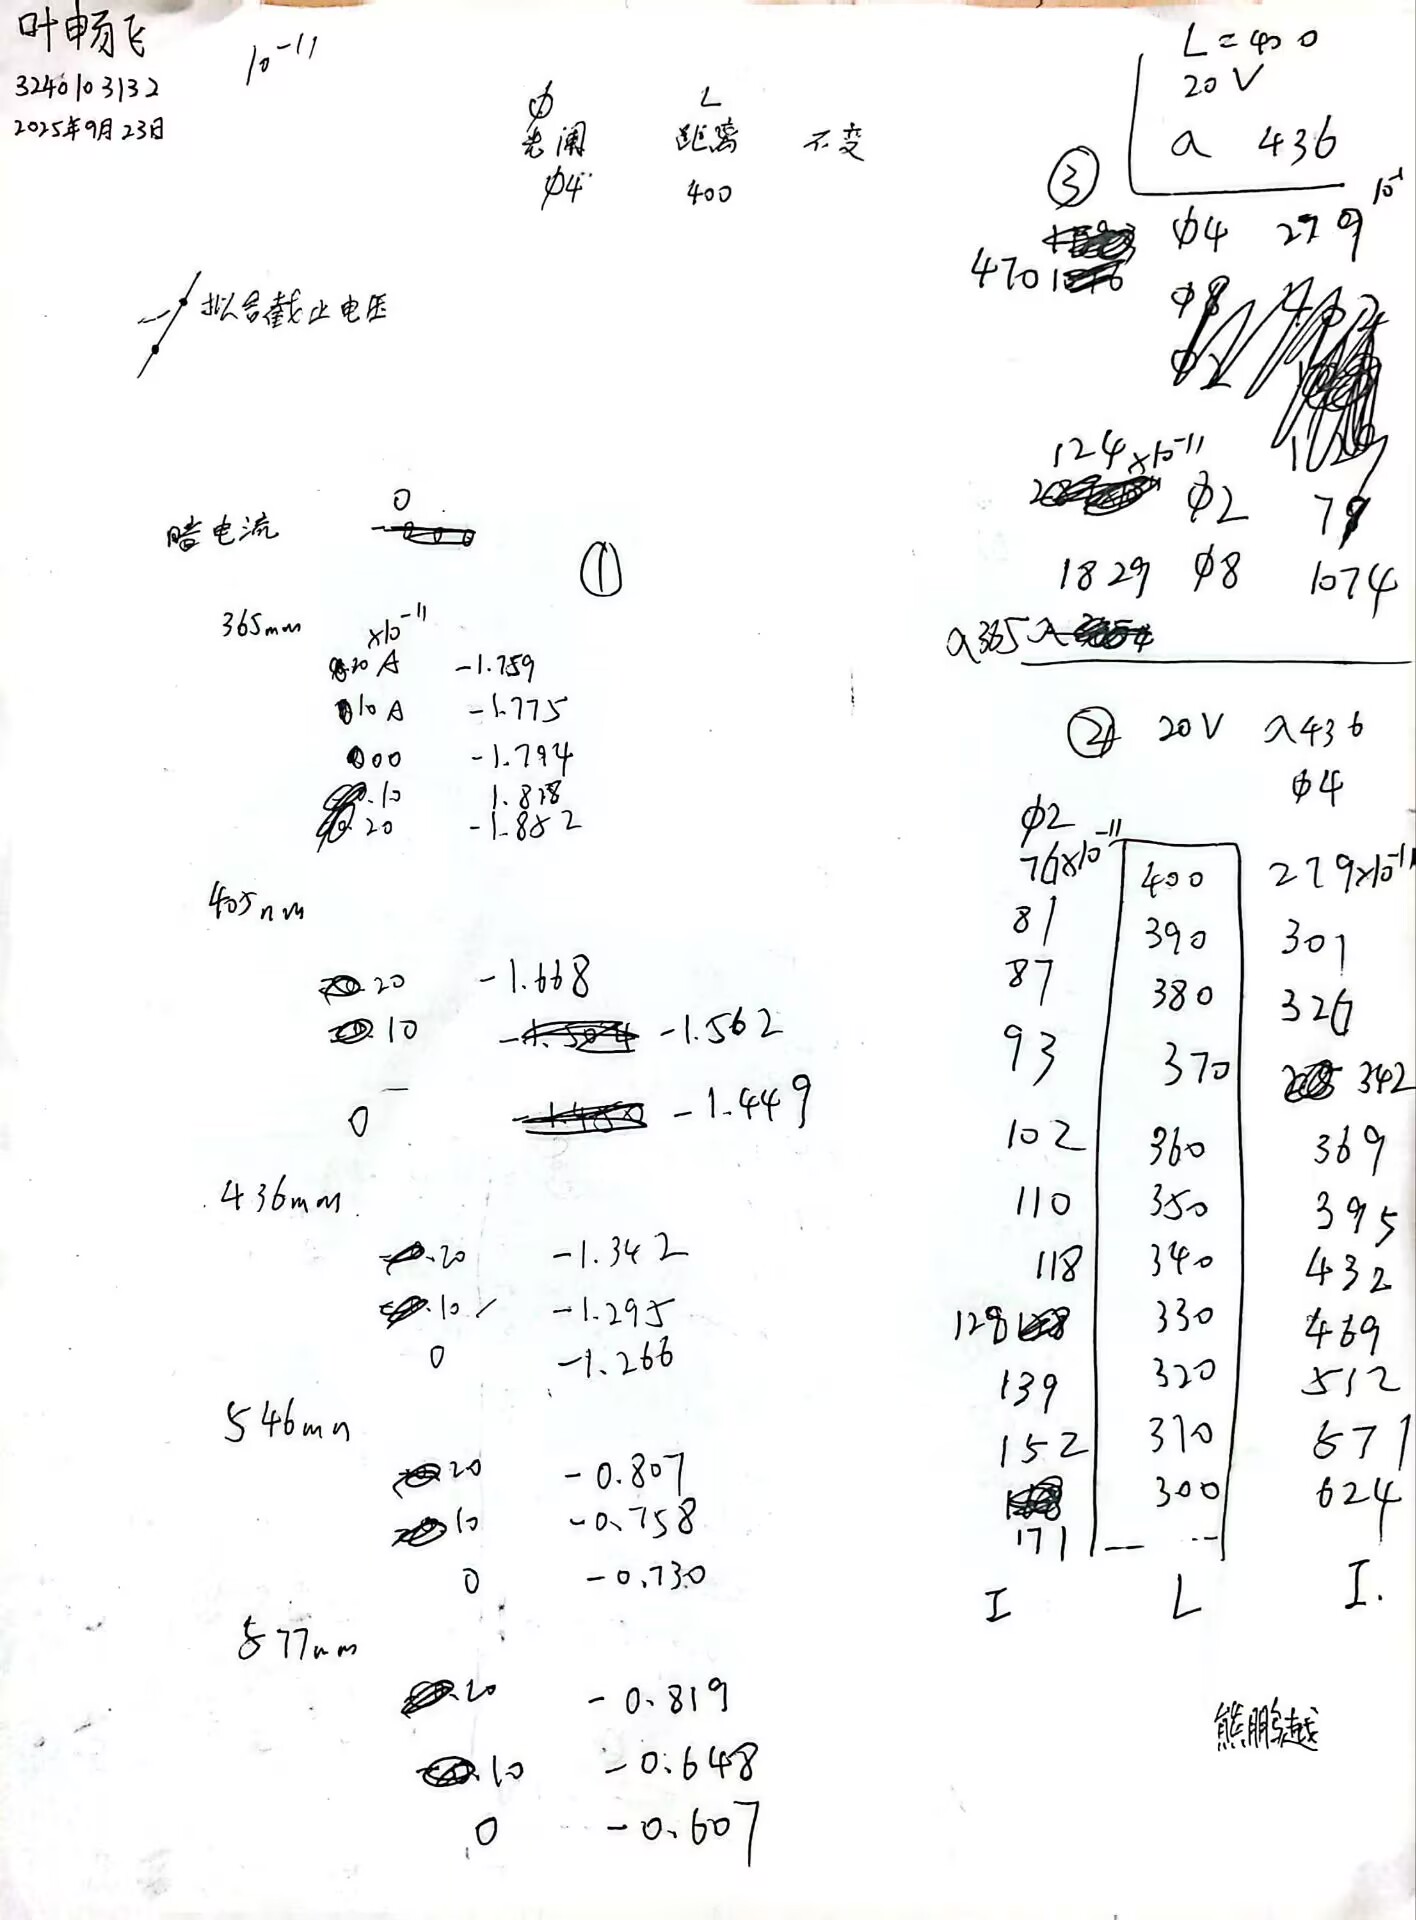 叶畅飞
3240103132
2025年9月23日
10⁻¹¹
ϕ L
光阑 距离 不变
ϕ4 400
拟合截止电压
暗电流 0
①
365nm
×10⁻¹¹
20 A -1.759
10 A -1.775
00 -1.794
.10 1.818
.20 -1.852
405nm
20 -1.668
10 -1.562
0 -1.449
436nm
.20 -1.342
.10 -1.295
0 -1.266
546nm
20 -0.807
10 -0.758
0 -0.730
577nm
.20 -0.819
.10 -0.648
0 -0.607
L=400
20V
λ 436
③
ϕ4 279
470
ϕ8
ϕ2
124×10⁻¹¹ ϕ2 79
1829 ϕ8 1074
λ365
② 20V λ436
ϕ2 ϕ4
76×10⁻¹¹ 400 279×10⁻¹¹
81 390 301
87 380 326
93 370 342
102 360 369
110 350 395
118 340 432
128 330 469
139 320 512
152 310 571
171 300 624
I L I.
熊鹏越